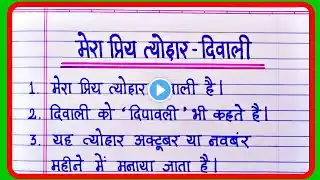 मेरा प्रिय त्योहार - दिवाली
1. मेरा प्रिय त्योहार वाली है।
2. दिवाली को 'दिपावली' भी कहते है।
3. यह त्योहार अक्टूबर या नवबंर
महीने में मनाया जाता है।